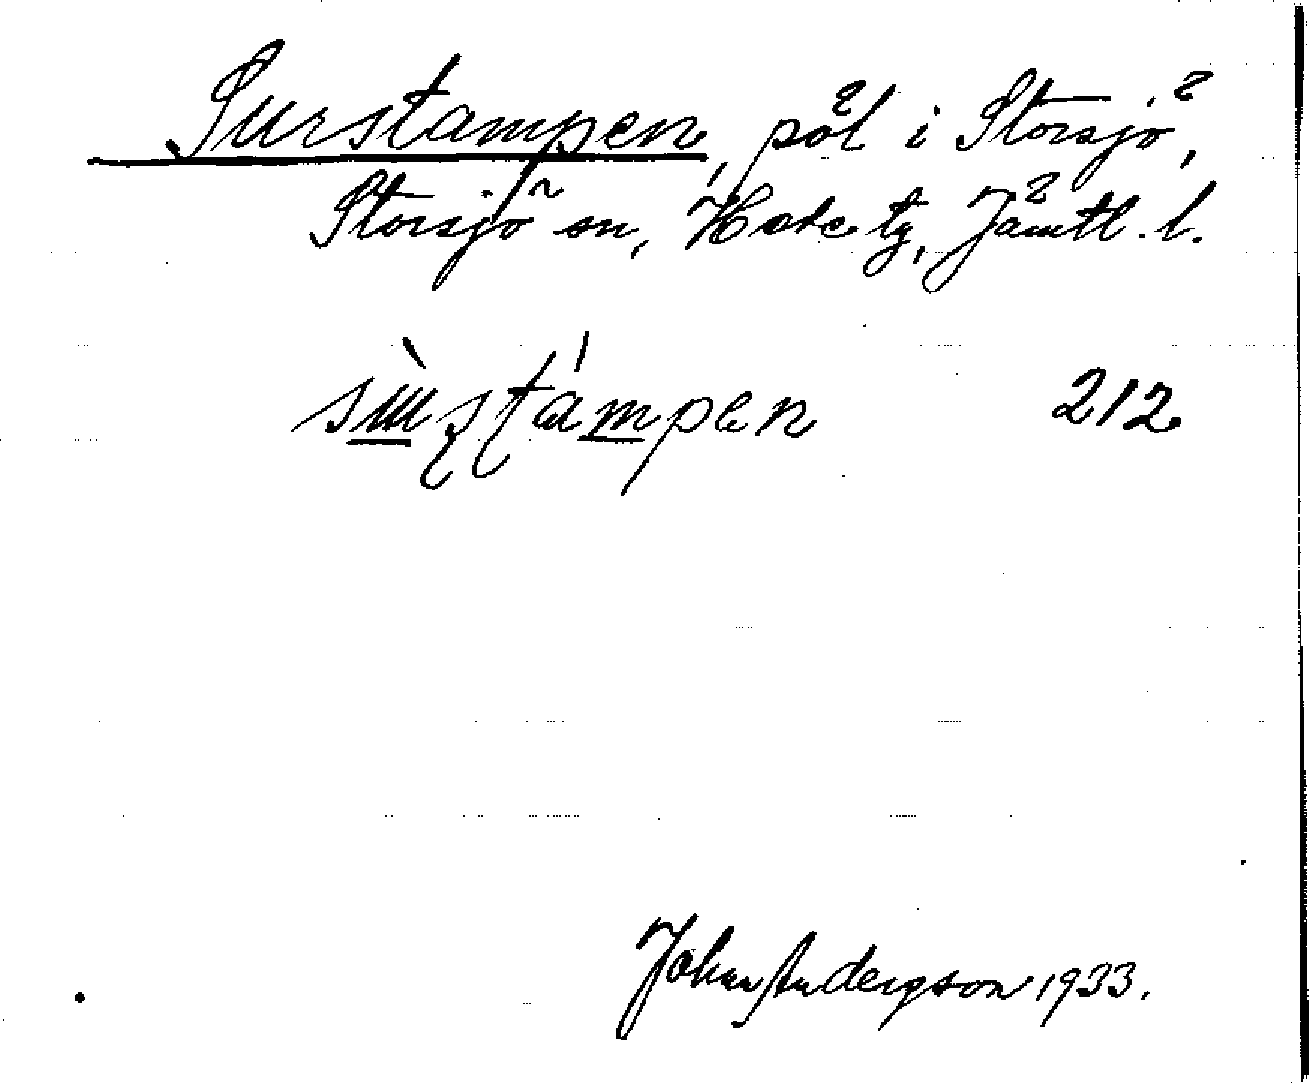 Surstampen, pöl i Storsjö,
Storsjö sn, Hede tg, Jämtl. l.
sùs̡t̡ámpen 212
Johan Andersson 1933.